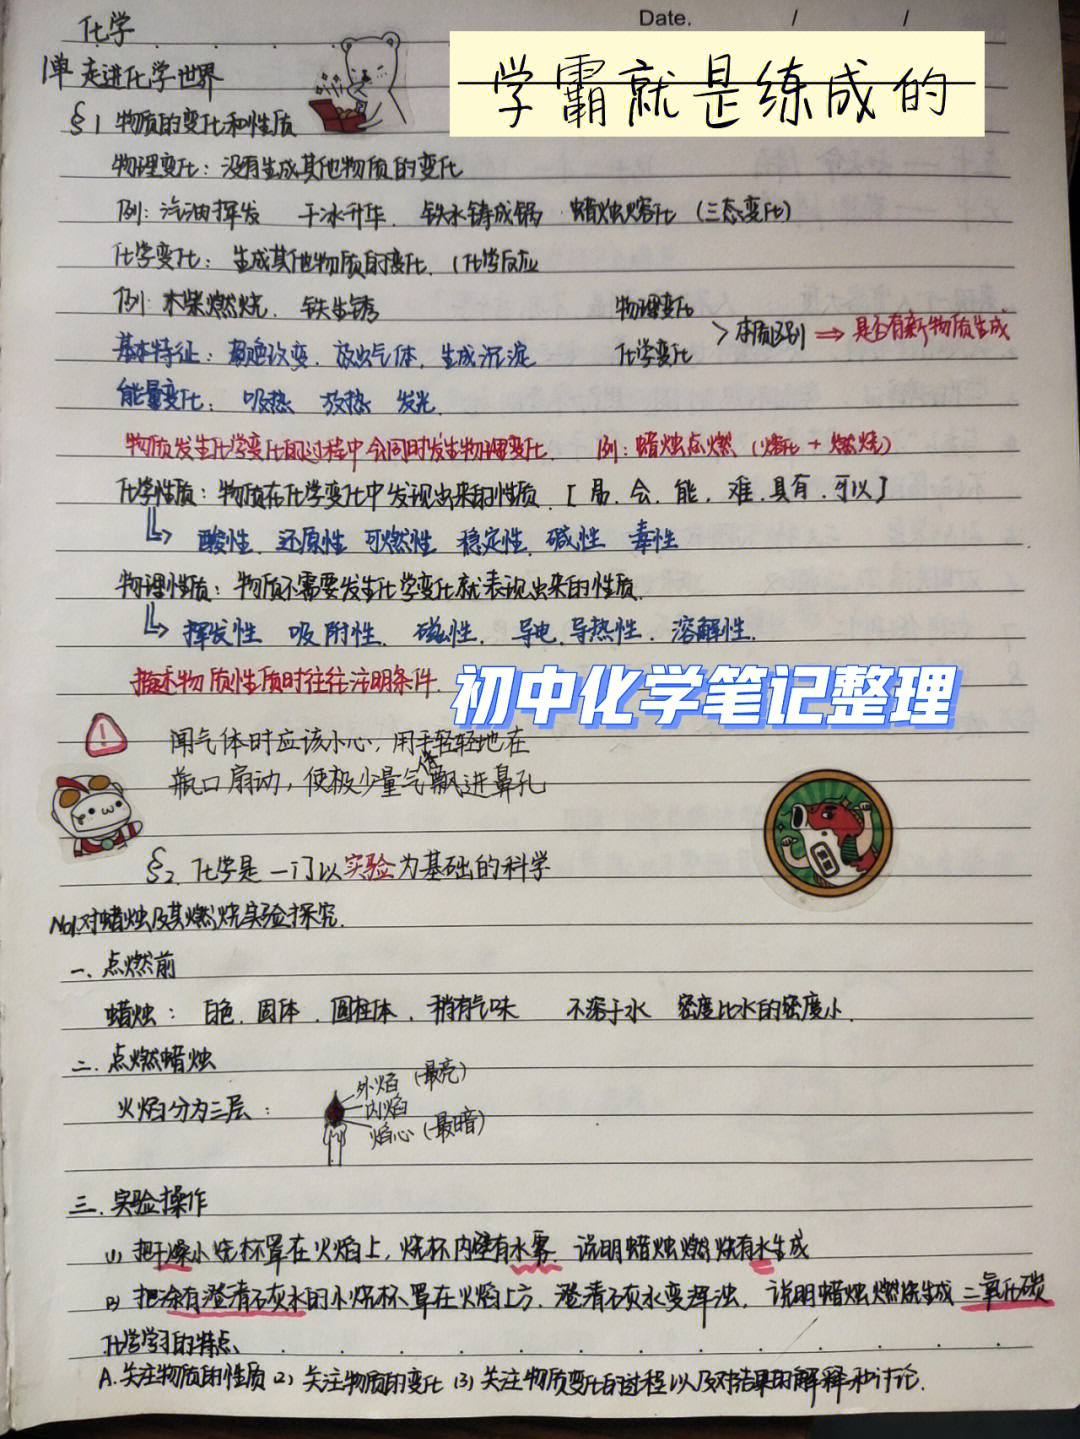 Date. / /
化学
学霸就是练成的
1单 走进化学世界
§1 物质的变化和性质
物理变化：没有生成其他物质的变化
例：汽油挥发 干冰升华. 铁水铸成锅 蜡烛熔化（三态变化）
化学变化：生成其他物质的变化.（化学反应
例：木柴燃烧. 铁生锈
物理变化
化学变化
> 本质区别 ⇒ 是否有新物质生成
基本特征：颜色改变. 放出气体. 生成沉淀
能量变化：吸热 放热 发光.
物质发生化学变化的过程中会同时发生物理变化. 例：蜡烛点燃（熔化+燃烧）
化学性质：物质在化学变化中发现出来的性质.[易.会.能.难.具有.可以]
酸性. 还原性 可燃性 稳定性. 碱性 毒性
物理性质：物质不需要发生化学变化就表现出来的性质.
挥发性 吸附性. 磁性. 导电.导热性. 溶解性.
描述物质性质时往往注明条件.
初中化学笔记整理
闻气体时应该小心，用手轻轻地在
瓶口扇动，使极少量气体飘进鼻孔
§2. 化学是一门以实验为基础的科学
No1.对蜡烛及其燃烧实验探究.
一. 点燃前
蜡烛： 白色. 固体. 圆柱体. 稍有气味 不溶于水 密度比水的密度小.
二. 点燃蜡烛
火焰分为三层：
外焰（最亮）
内焰
焰心（最暗）
三. 实验操作
(1) 把干燥小烧杯罩在火焰上，烧杯内壁有水雾. 说明蜡烛燃烧有水生成
(2) 把涂有澄清石灰水的小烧杯罩在火焰上方. 澄清石灰水变浑浊. 说明蜡烛燃烧生成二氧化碳
化学学习的特点.
A.关注物质的性质 (2) 关注物质的变化 (3) 关注物质变化的过程以及对结果的解释和讨论.